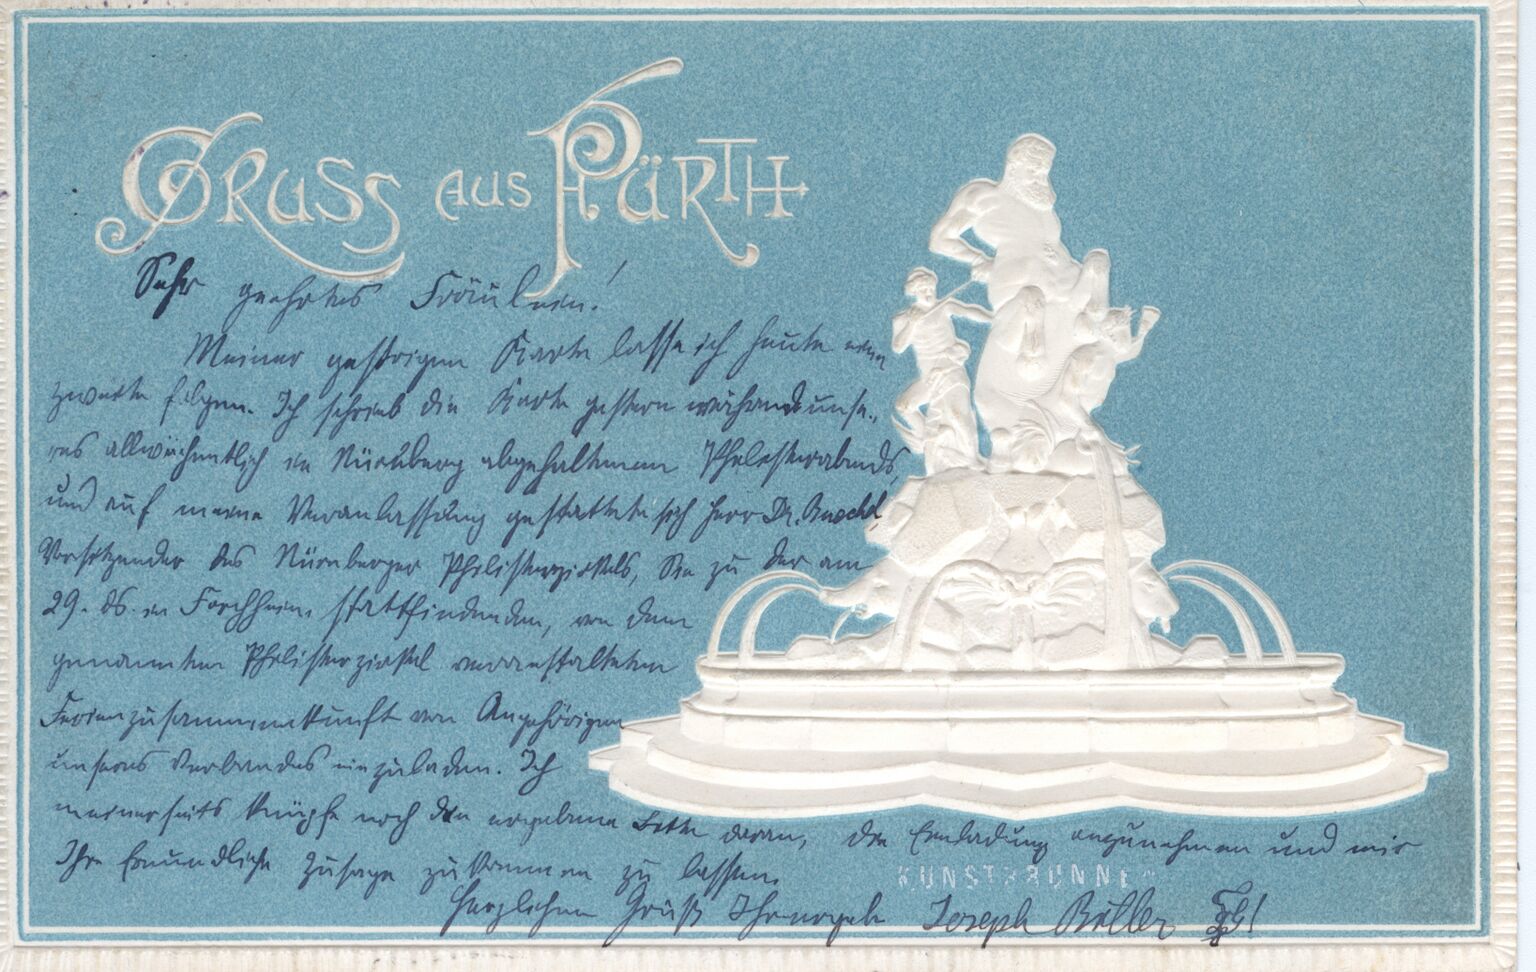 Gruss aus Fürth
Sehr geehrtes Fräulein!
Meiner gestrigen Karte lasse ich heute eine
zweite folgen. Ich schrieb die Karte gestern während unse-
res allwöchentlich in Nürnberg abgehaltenen Philisterabends,
und auf meine Veranlassung gestattete sich Herr Dr.
Vorsitzender des Nürnberger Philisterzirkels, Sie zu der am
29. ds. in Forchheim stattfindenden, von dem
genannten Philisterzirkel veranstalteten
Ferienzusammenkunft von Angehörigen
unseres Verbandes einzuladen. Ich
meinerseits knüpfe noch die ergebene Bitte daran, die Einladung anzunehmen und mir
Ihre freundliche Zusage zukommen zu lassen.
KUNSTBRUNNEN
Herzlichen Gruß Ihr ergeb. Joseph